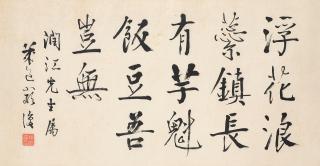 浮花浪
蘂鎮長
有芋魁
飯豆吾
豈無
先生屬